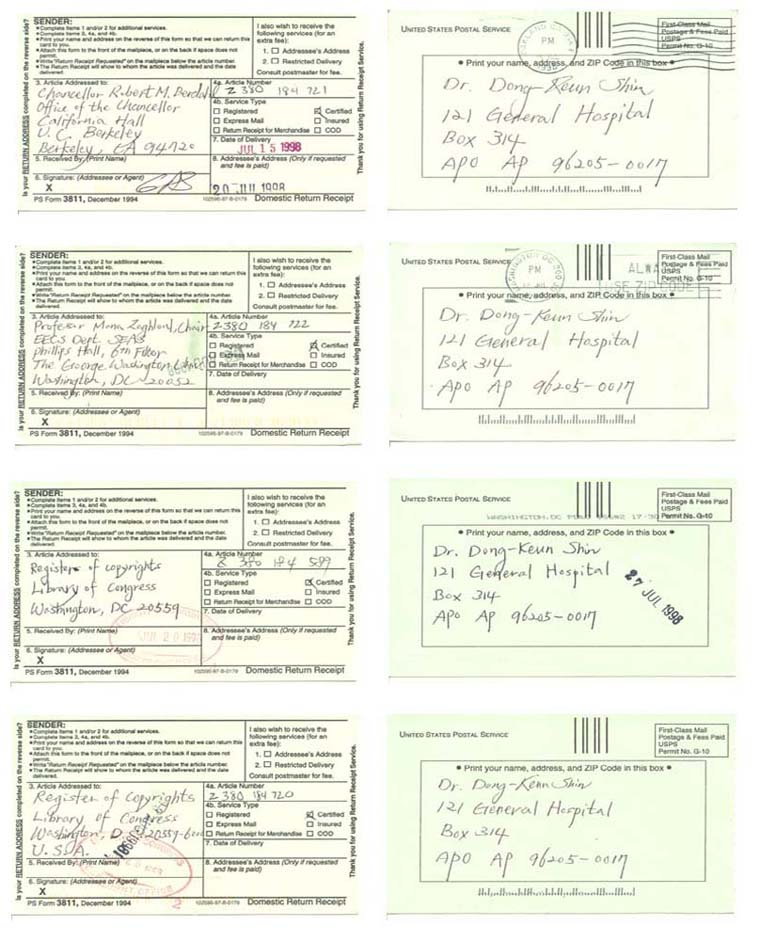 Is your RETURN ADDRESS completed on the reverse side?
SENDER:
Complete items 1 and/or 2 for additional services.
Complete items 3, 4a, and 4b.
Print your name and address on the reverse of this form so that we can return this card to you.
Attach this form to the front of the mailpiece, or on the back if space does not permit.
Write "Return Receipt Requested" on the mailpiece below the article number.
The Return Receipt will show to whom the article was delivered and the date delivered.
I also wish to receive the
following services (for an
extra fee):
1. Addressee's Address
2. Restricted Delivery
Consult postmaster for fee.
3. Article Addressed to:
Chancellor Robert M. Berdahl
Office of the Chancellor
California Hall
U.C. Berkeley
Berkeley, CA 94720
4a. Article Number
Z 380 184 721
4b. Service Type
Registered Certified
Express Mail Insured
Return Receipt for Merchandise COD
7. Date of Delivery
JUL 15 1998
5. Received By: (Print Name)
8. Addressee's Address (Only if requested
and fee is paid)
6. Signature: (Addressee or Agent)
X
20 JUL 1998
PS Form 3811, December 1994
102595-97-B-0179 Domestic Return Receipt
Thank you for using Return Receipt Service.
UNITED STATES POSTAL SERVICE
PM
First-Class Mail
Postage & Fees Paid
USPS
Permit No. G-10
Print your name, address, and ZIP Code in this box
Dr. Dong-Keun Shin
121 General Hospital
Box 314
APO AP 96205-0017
Is your RETURN ADDRESS completed on the reverse side?
SENDER:
Complete items 1 and/or 2 for additional services.
Complete items 3, 4a, and 4b.
Print your name and address on the reverse of this form so that we can return this card to you.
Attach this form to the front of the mailpiece, or on the back if space does not permit.
Write "Return Receipt Requested" on the mailpiece below the article number.
The Return Receipt will show to whom the article was delivered and the date delivered.
I also wish to receive the
following services (for an
extra fee):
1. Addressee's Address
2. Restricted Delivery
Consult postmaster for fee.
3. Article Addressed to:
Professor Mona Zaghloul, Chair
EECS Dept. SEAS
Phillips Hall, 6th Floor
The George Washington
Washington, DC 20052
4a. Article Number
Z 380 184 722
4b. Service Type
Registered Certified
Express Mail Insured
Return Receipt for Merchandise COD
7. Date of Delivery
5. Received By: (Print Name)
8. Addressee's Address (Only if requested
and fee is paid)
6. Signature: (Addressee or Agent)
X
PS Form 3811, December 1994
102595-97-B-0179 Domestic Return Receipt
Thank you for using Return Receipt Service.
UNITED STATES POSTAL SERVICE
PM
First-Class Mail
Postage & Fees Paid
USPS
Permit No. G-10
Print your name, address, and ZIP Code in this box
Dr. Dong-Keun Shin
121 General Hospital
Box 314
APO AP 96205-0017
Is your RETURN ADDRESS completed on the reverse side?
SENDER:
Complete items 1 and/or 2 for additional services.
Complete items 3, 4a, and 4b.
Print your name and address on the reverse of this form so that we can return this card to you.
Attach this form to the front of the mailpiece, or on the back if space does not permit.
Write "Return Receipt Requested" on the mailpiece below the article number.
The Return Receipt will show to whom the article was delivered and the date delivered.
I also wish to receive the
following services (for an
extra fee):
1. Addressee's Address
2. Restricted Delivery
Consult postmaster for fee.
3. Article Addressed to:
Register of copyrights
Library of Congress
Washington, DC 20559
4a. Article Number
Z 380 184 589
4b. Service Type
Registered Certified
Express Mail Insured
Return Receipt for Merchandise COD
7. Date of Delivery
5. Received By: (Print Name)
JUL 20 199
8. Addressee's Address (Only if requested
and fee is paid)
6. Signature: (Addressee or Agent)
X
PS Form 3811, December 1994
102595-97-B-0179 Domestic Return Receipt
Thank you for using Return Receipt Service.
UNITED STATES POSTAL SERVICE
WASHINGTON, DC
First-Class Mail
Postage & Fees Paid
USPS
Permit No. G-10
Print your name, address, and ZIP Code in this box
Dr. Dong-Keun Shin
121 General Hospital
Box 314
APO AP 96205-0017
27 JUL 1998
Is your RETURN ADDRESS completed on the reverse side?
SENDER:
Complete items 1 and/or 2 for additional services.
Complete items 3, 4a, and 4b.
Print your name and address on the reverse of this form so that we can return this card to you.
Attach this form to the front of the mailpiece, or on the back if space does not permit.
Write "Return Receipt Requested" on the mailpiece below the article number.
The Return Receipt will show to whom the article was delivered and the date delivered.
I also wish to receive the
following services (for an
extra fee):
1. Addressee's Address
2. Restricted Delivery
Consult postmaster for fee.
3. Article Addressed to:
Register of Copyrights
Library of Congress
Washington, D.C. 20559-6000
U.S.A.
4a. Article Number
Z 380 184 720
4b. Service Type
Registered Certified
Express Mail Insured
Return Receipt for Merchandise COD
7. Date of Delivery
5. Received By: (Print Name)
8. Addressee's Address (Only if requested
and fee is paid)
6. Signature: (Addressee or Agent)
X
2
PS Form 3811, December 1994
102595-97-B-0179 Domestic Return Receipt
Thank you for using Return Receipt Service.
UNITED STATES POSTAL SERVICE
First-Class Mail
Postage & Fees Paid
USPS
Permit No. G-10
Print your name, address, and ZIP Code in this box
Dr. Dong-Keun Shin
121 General Hospital
Box 314
APO AP 96205-0017